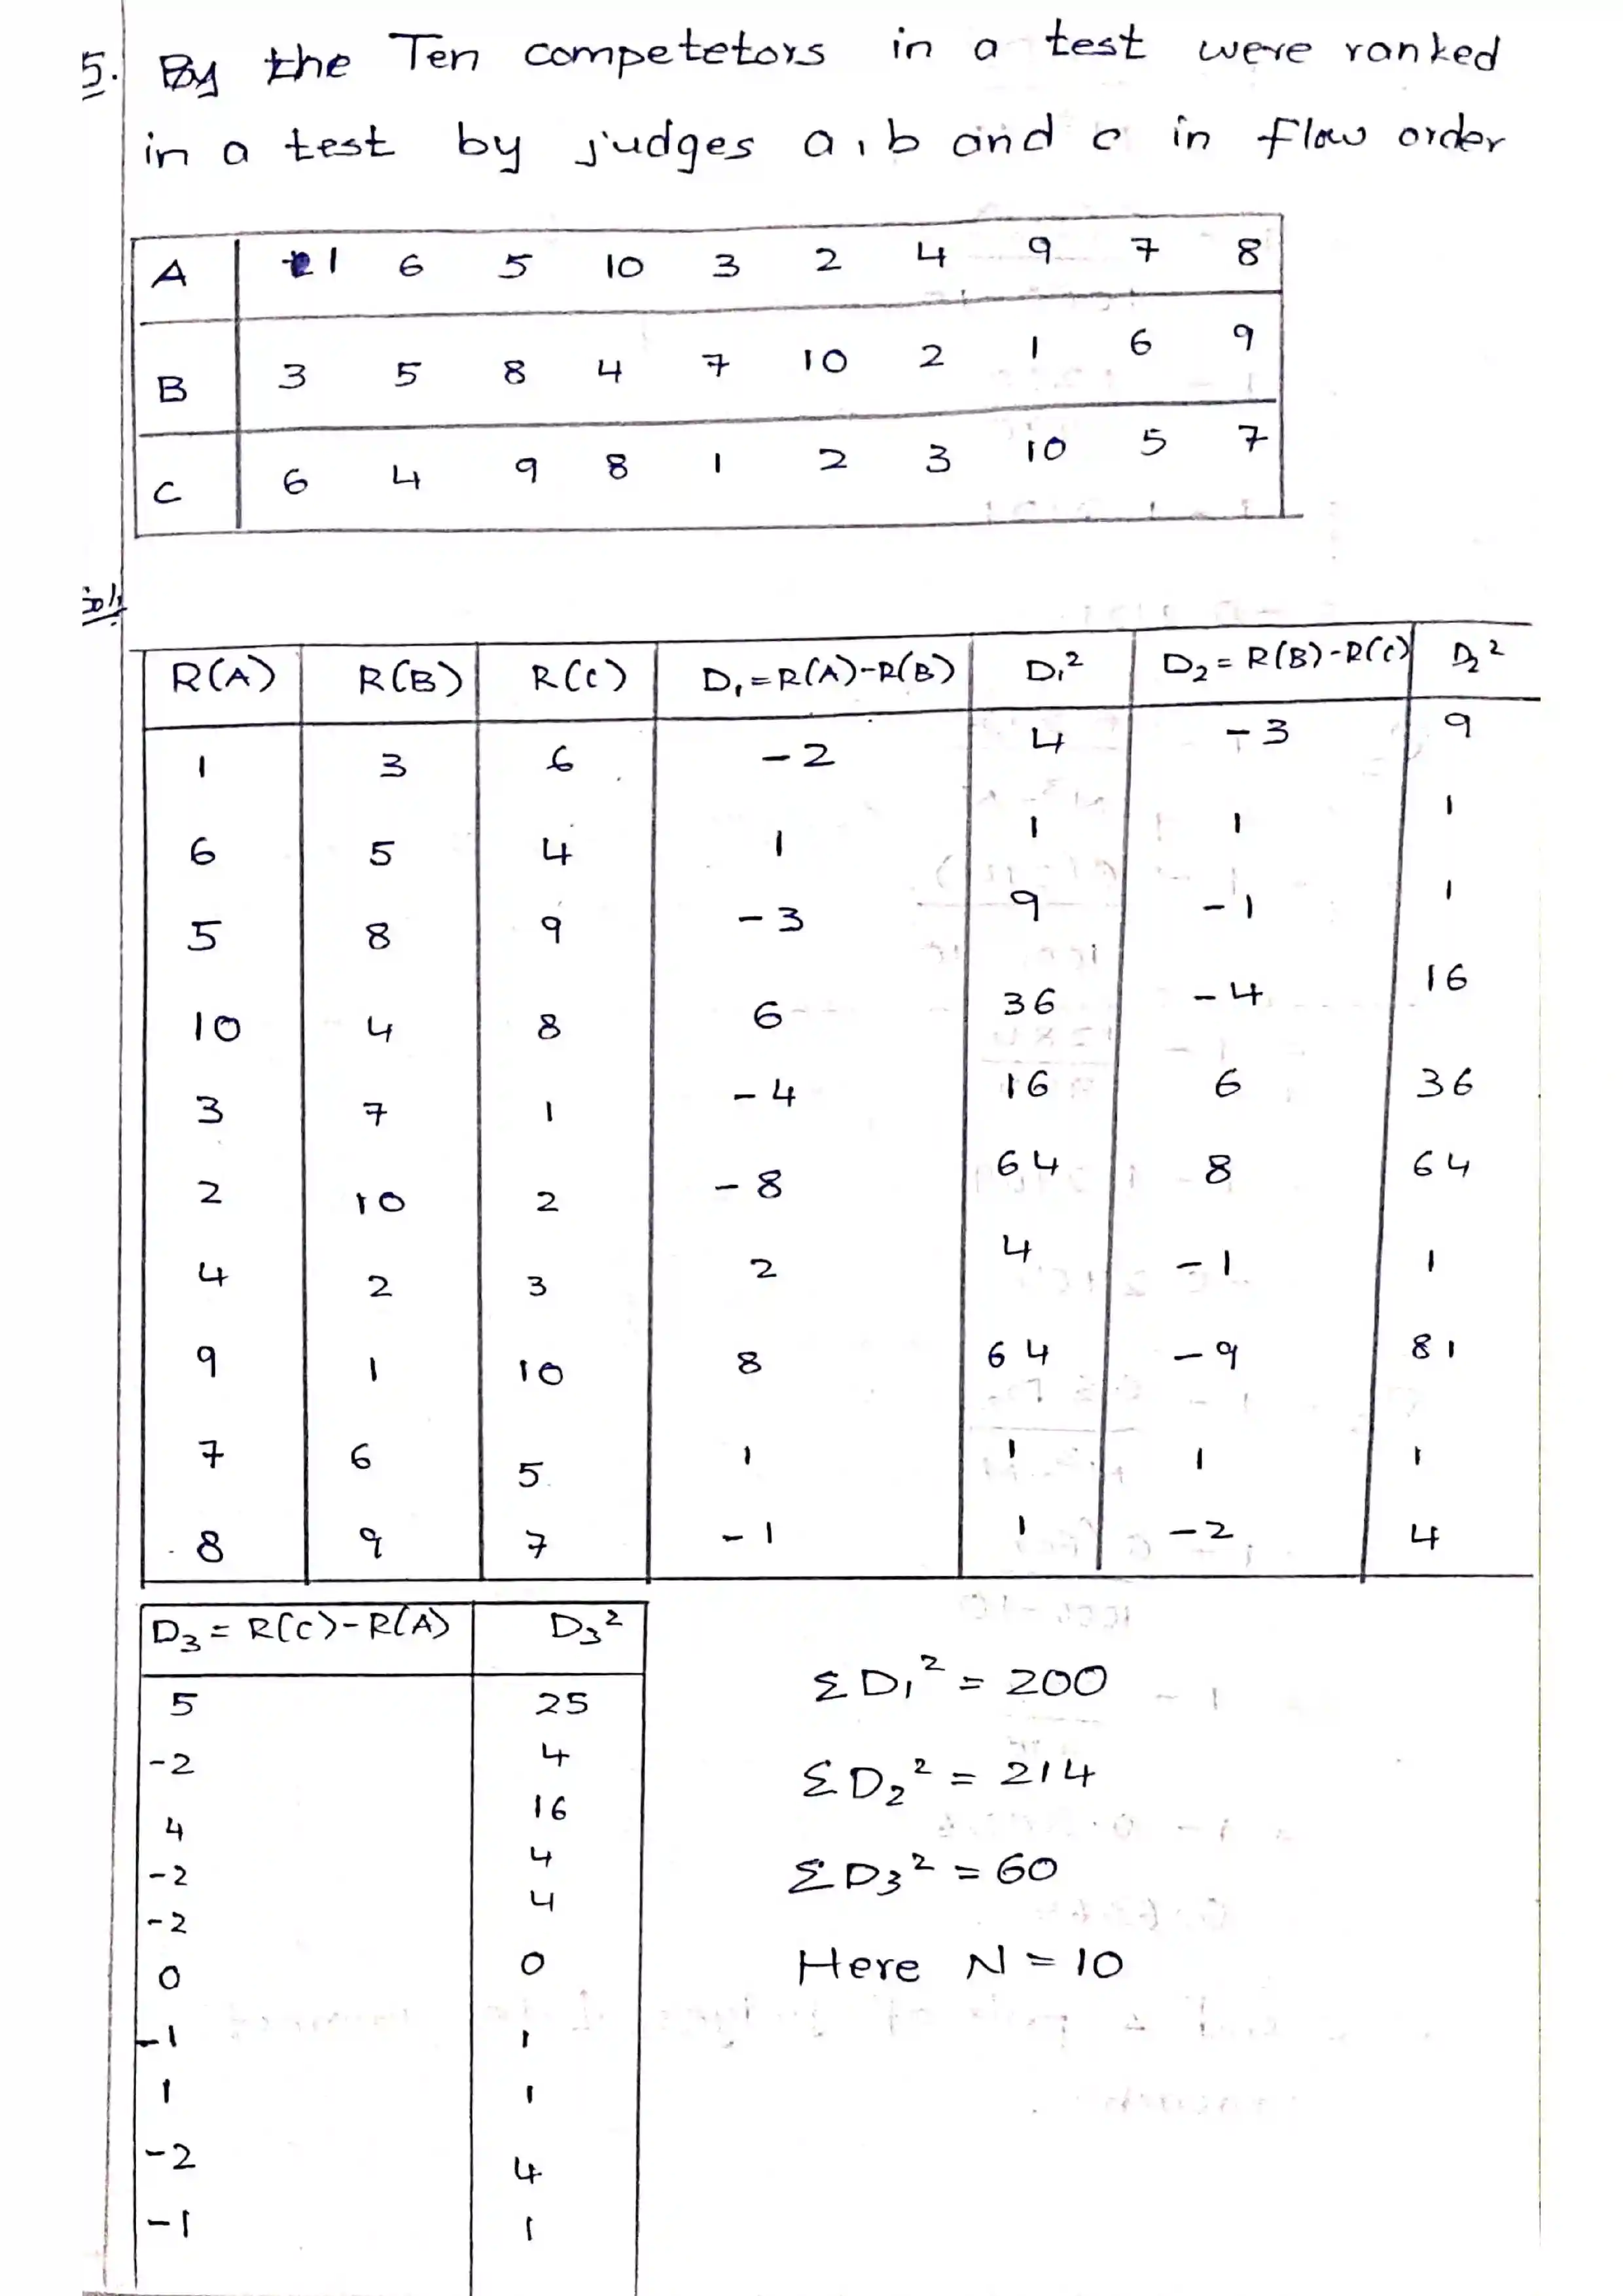 5. By the Ten competetors in a test were ranked
in a test by judges a, b and c in flow order
A 1 6 5 10 3 2 4 9 7 8
B 3 5 8 4 7 10 2 1 6 9
C 6 4 9 8 1 2 3 10 5 7
sol:
R(A) R(B) R(C) D₁=R(A)-R(B) D₁² D₂=R(B)-R(C) D₂²
1 3 6 -2 4 -3 9
6 5 4 1 1 1 1
5 8 9 -3 9 -1 1
10 4 8 6 36 -4 16
3 7 1 -4 16 6 36
2 10 2 -8 64 8 64
4 2 3 2 4 -1 1
9 1 10 8 64 -9 81
7 6 5 1 1 1 1
8 9 7 -1 1 -2 4
D₃ = R(C)-R(A) D₃²
5 25
-2 4
4 16
-2 4
-2 4
0 0
-1 1
1 1
-2 4
-1 1
ΣD₁² = 200
ΣD₂² = 214
ΣD₃² = 60
Here N = 10